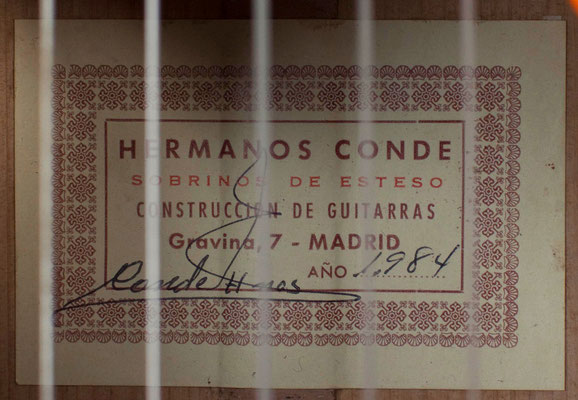 HERMANOS CONDE
SOBRINOS DE ESTESO
CONSTRUCCIÓN DE GUITARRAS
Gravina, 7 - MADRID
AÑO 1.984
Conde Hnos